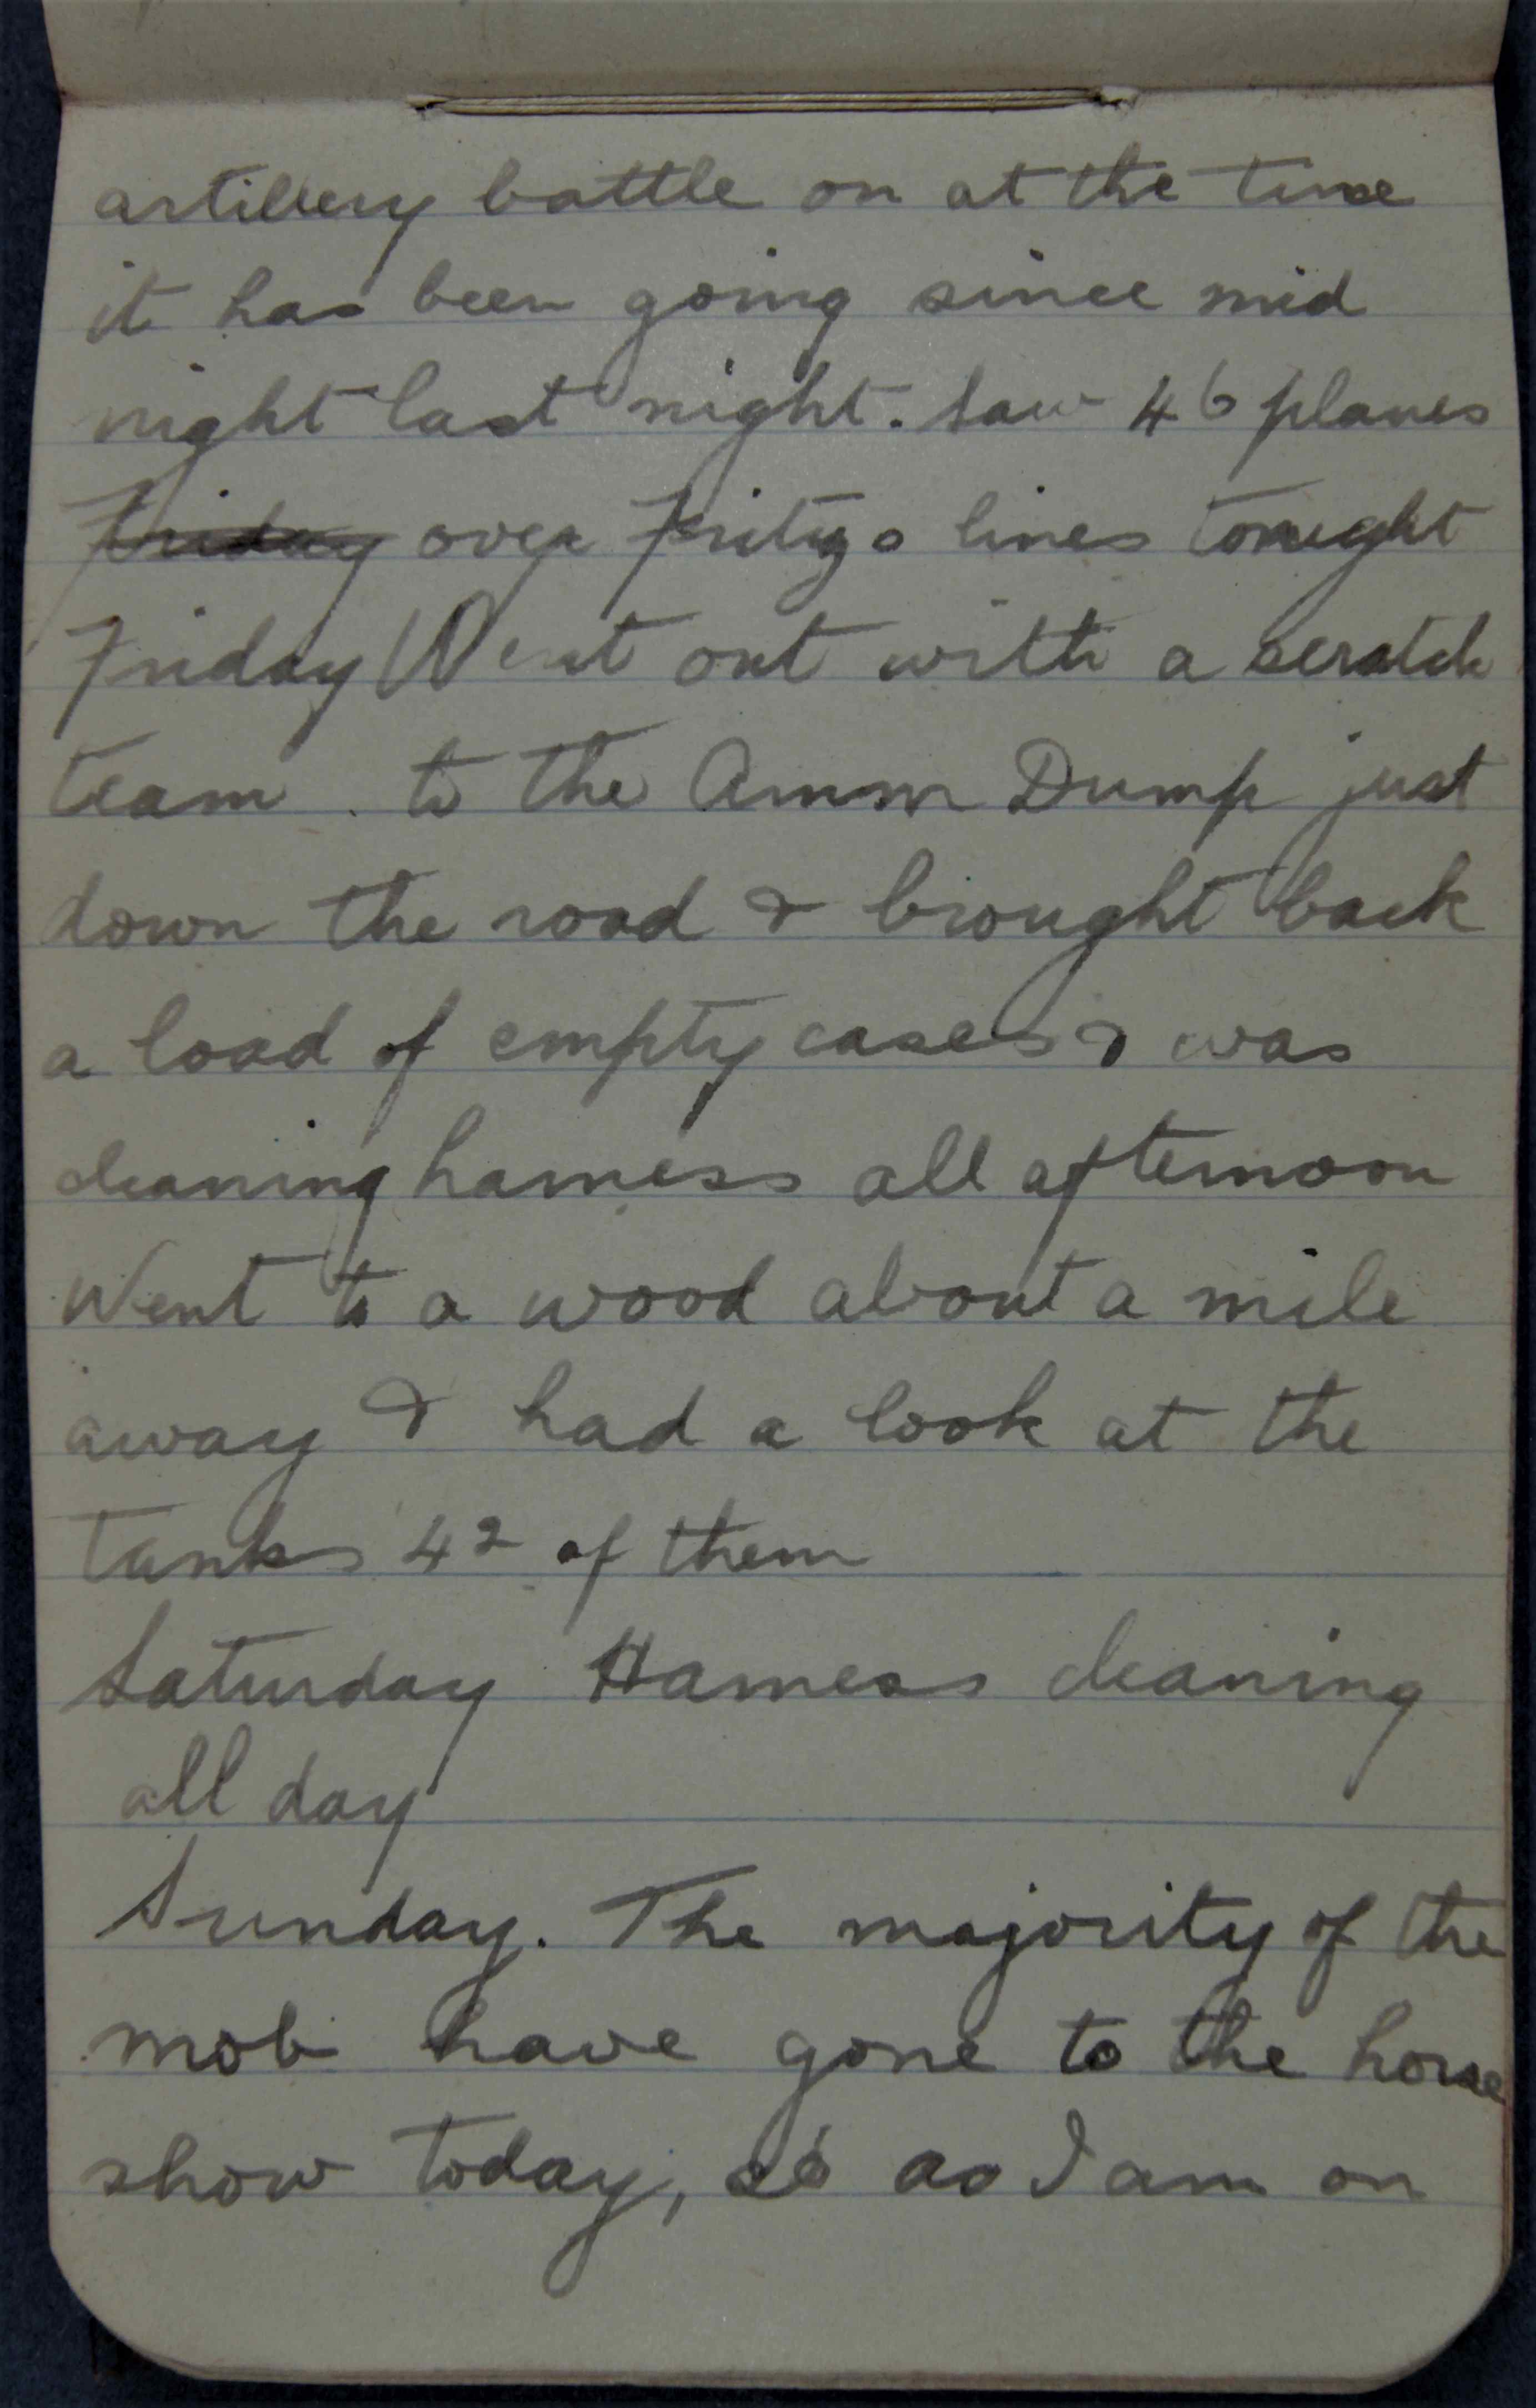 artillery battle on at the time
it has been going since mid
night last night. Saw 46 planes
Friday over Fritzs lines tonight
Friday Went out with a scratch
team to the Amm Dump just
down the road & brought back
a load of empty cases & was
cleaning harness all afternoon
Went to a wood about a mile
away & had a look at the
tanks 42 of them
Saturday Harness cleaning
all day
Sunday. The majority of the
mob have gone to the horse
show today, so as I am on